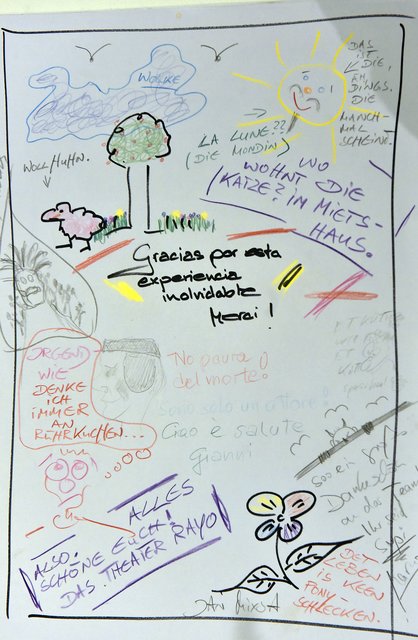 WOLKE
DAS
IST
DIE,
ÄH,
DINGS.
DIE
MANCH-
MAL
SCHEINT.
LA LUNE??
(DIE MONDIN)
WOLLHUHN.
WO
WOHNT DIE
KATZE? IM MIETS-
HAUS.
Gracias por esta
experiencia
inolvidable
Merci!
IRGEND
WIE
DENKE
ICH
IMMER
AN
RÜHRKUCHEN...
No paura
del morte!
sono solo un attore!
Ciao e salute
Gianni
ALLES
ALSO:
SCHÖNE EUCH!
DAS THEATER RAYO
Dankeschön
an das Team
DET
LEBEN
IS KEEN
PONY-
SCHLECKEN.